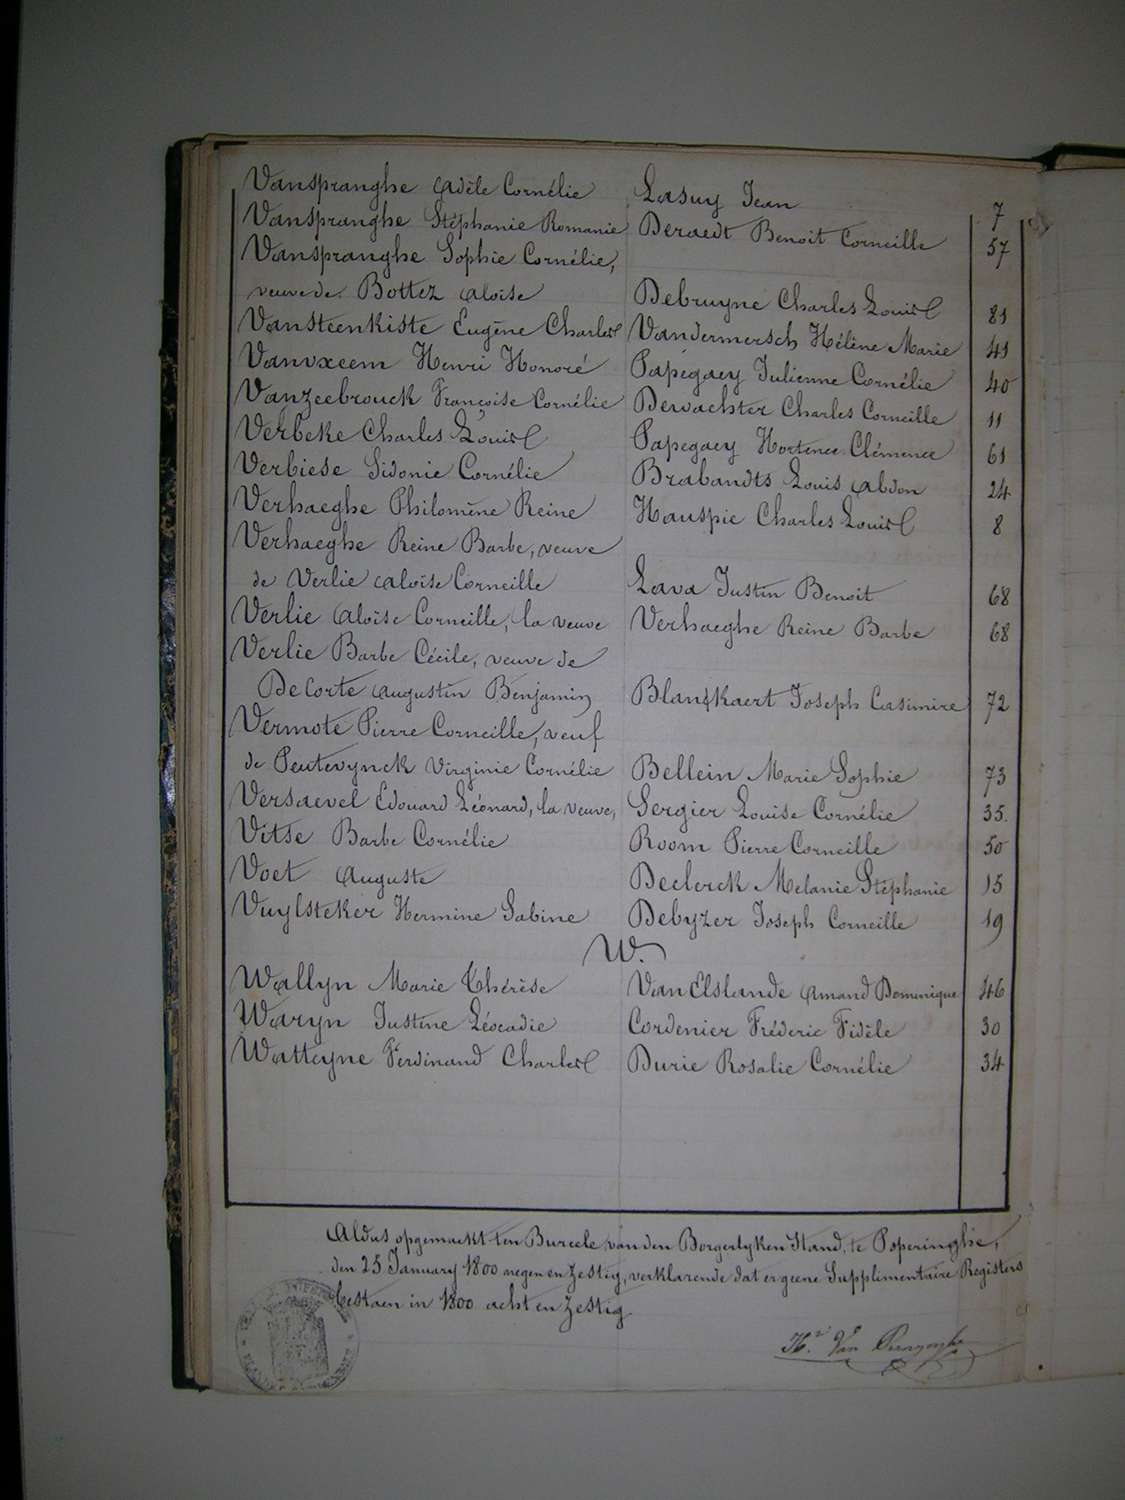 Vanspranghe Adèle Cornélie Lasuy Jean 7
Vanspranghe Stéphanie Romanie Deraedt Benoit Corneille 57
Vanspranghe Sophie Cornélie,
veuve de Bottez Aloïse Debruyne Charles Louis 81
Vansteenkiste Eugène Charles Vandermersch Hélène Marie 41
Vanvxeem Henri Honoré Papegaey Julienne Cornélie 40
Vanzeebrouck Françoise Cornélie Dewachter Charles Corneille 11
Verbeke Charles Louis Papegaey Hortence Clémence 61
Verbiese Sidonie Cornélie Brabandts Louis Abdon 24
Verhaeghe Philomène Reine Hauspie Charles Louis 8
Verhaeghe Reine Barbe, veuve
de Verlie Aloïse Corneille Lava Justin Benoit 68
Verlie Aloïse Corneille, la veuve Verhaeghe Reine Barbe 68
Verlie Barbe Cécile, veuve de
DeCorte Augustin Benjamin Blanckaert Joseph Casimire 72
Vermote Pierre Corneille, veuf
de Peutevynck Virginie Cornélie Bellein Marie Sophie 73
Versaevel Edouard Léonard, la veuve, Sergier Louise Cornélie 35.
Vitse Barbe Cornélie Room Pierre Corneille 50
Voet Auguste Declerck Melanie Stéphanie 15
Vuylsteker Hermine Sabine Debyzer Joseph Corneille 19
W.
Wallyn Marie Thérèse VanElslande Amand Dominique 46
Waryn Justine Léocadie Cordenier Fréderic Fidèle 30
Watteyne Ferdinand Charles Durie Rosalie Cornélie 34
Aldus opgemaekt ten Bureele van den Borgerlyken Stand, te Poperinghe,
den 25 January 1800 negen en zestig, verklarende dat er geene Supplimentaire Registers
bestaen in 1800 acht en zestig.
Van